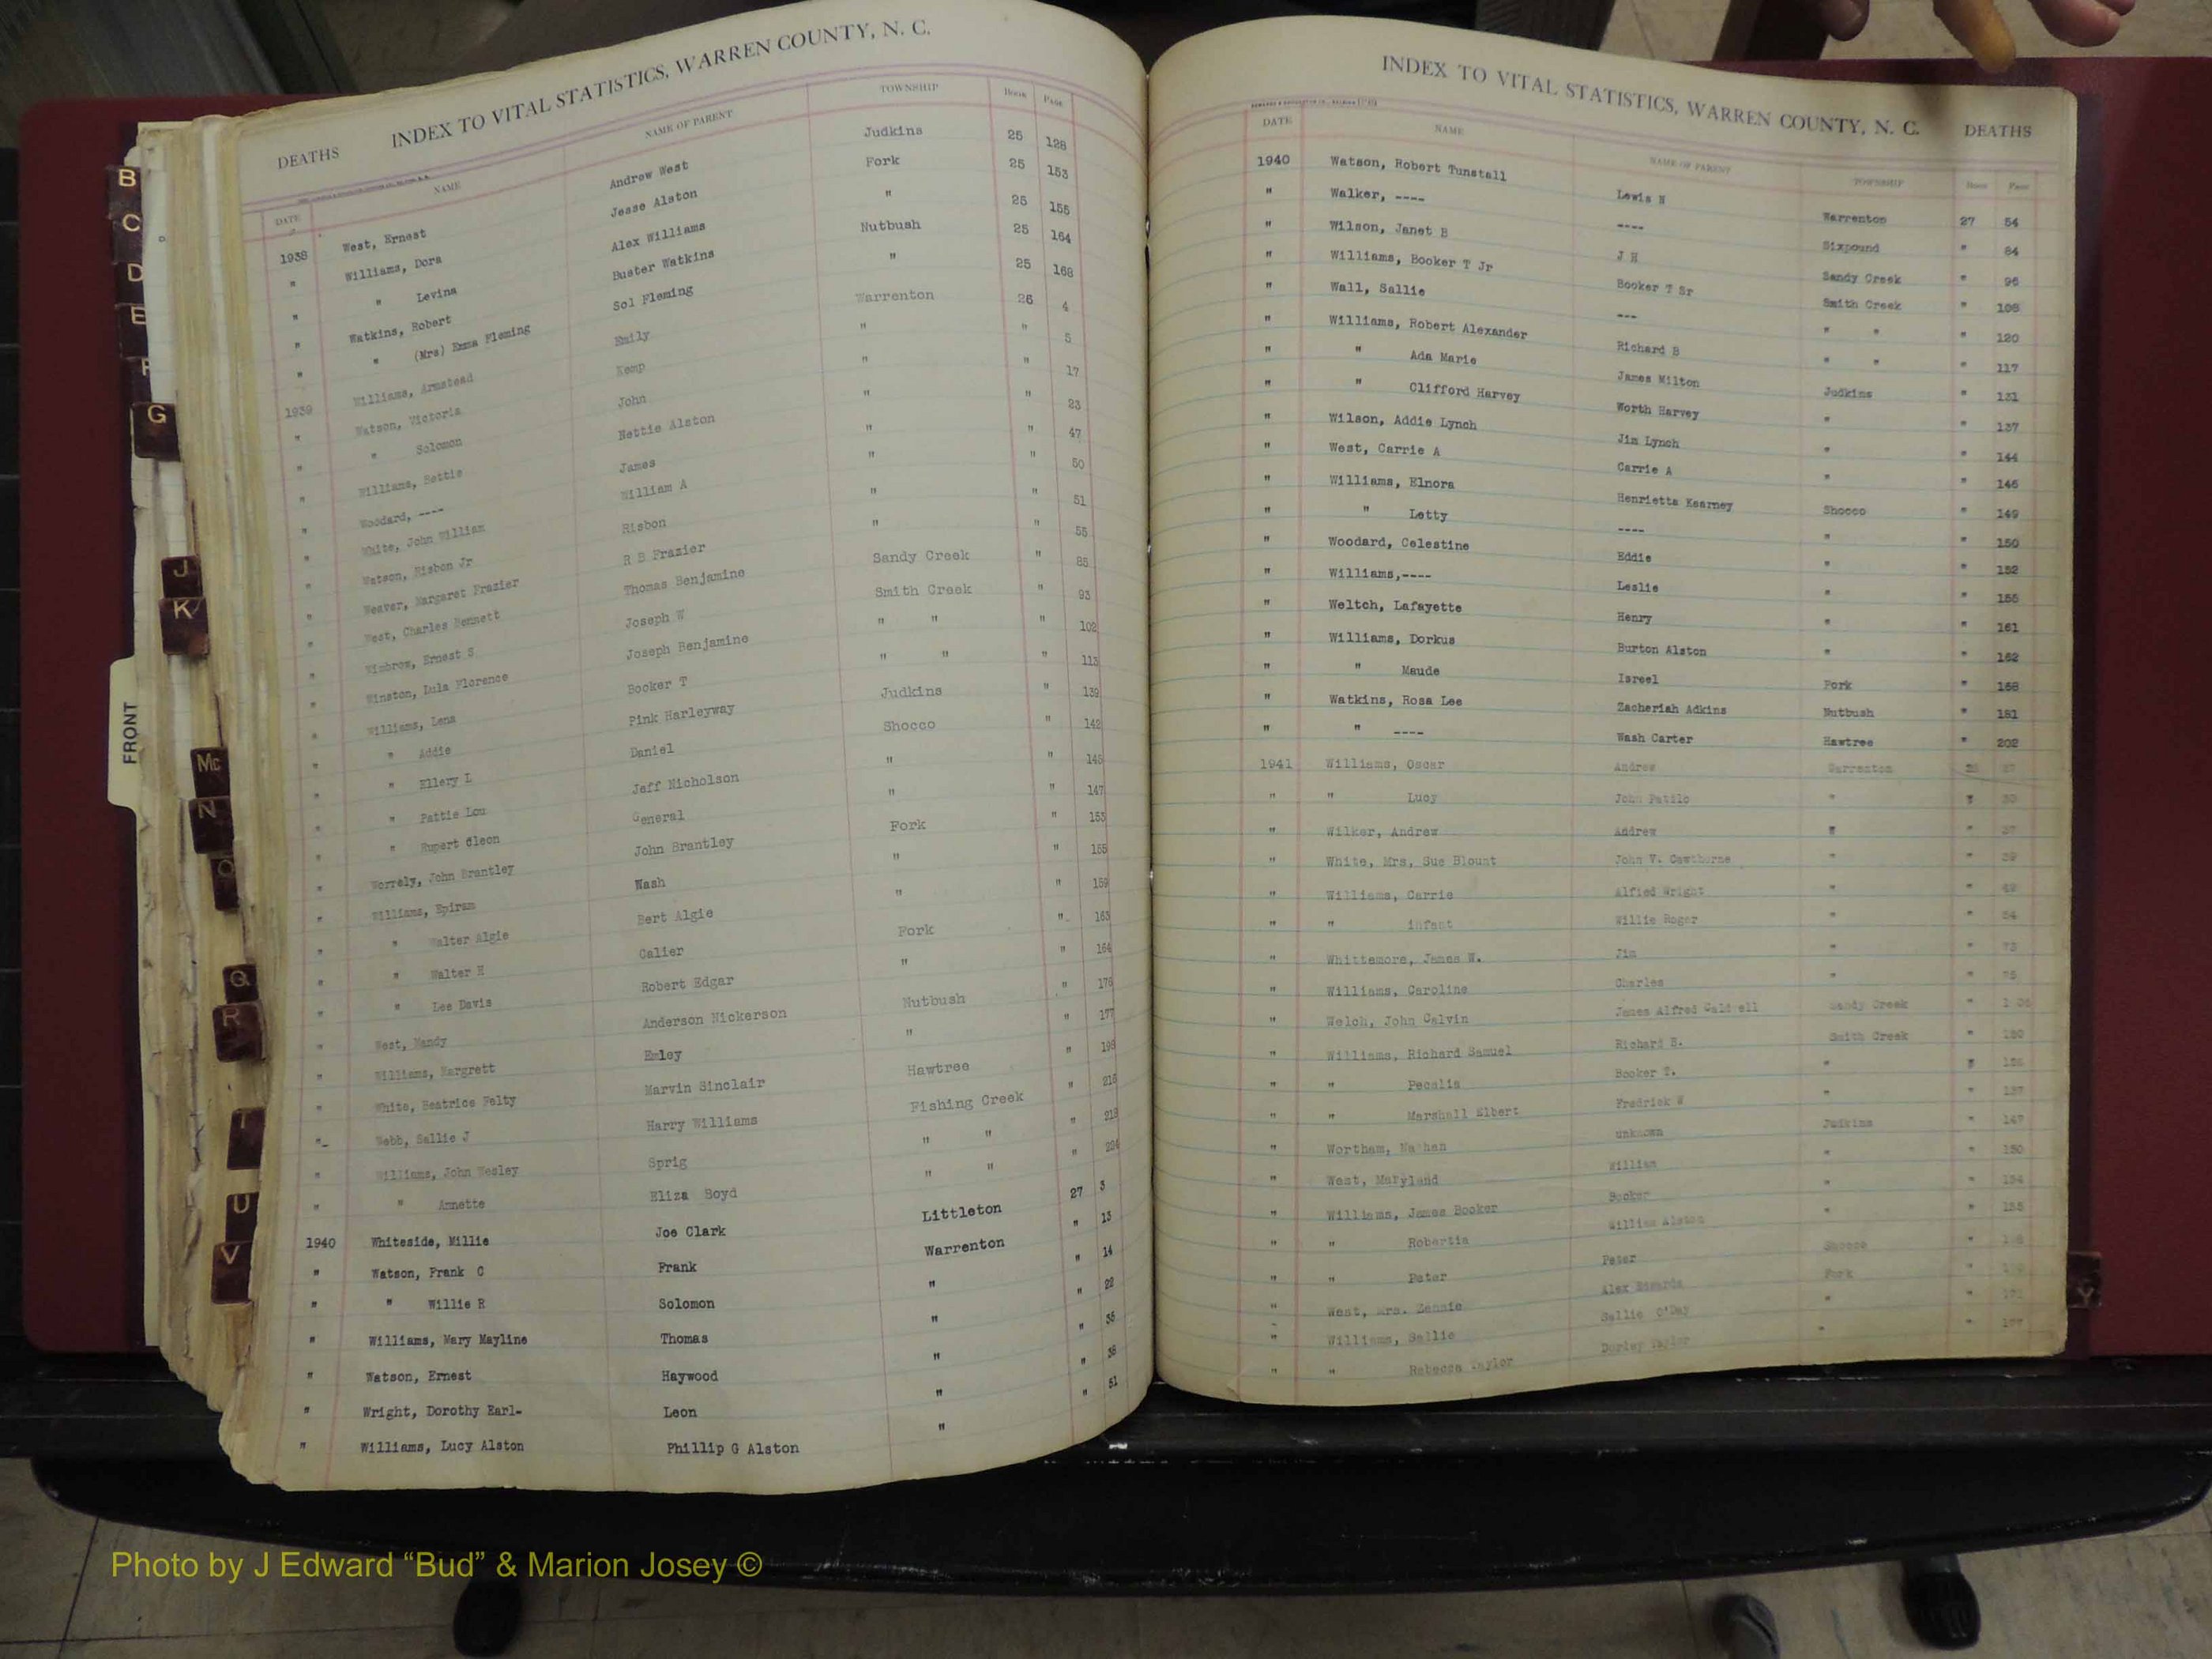 INDEX TO VITAL STATISTICS, WARREN COUNTY, N. C.
DEATHS
DATE NAME NAME OF PARENT TOWNSHIP BOOK PAGE
1938 West, Ernest Andrew West Judkins 25 128
" Williams, Dora Jesse Alston Fork 25 153
" " Levina Alex Williams " 25 155
" Watkins, Robert Buster Watkins Nutbush 25 164
" " (Mrs) Emma Fleming Sol Fleming " 25 168
1939 Williams, Armstead Emily Warrenton 26 4
" Watson, Victoria Kemp " " 5
" " Solomon John " " 17
" Williams, Hettie Nettie Alston " " 23
" Woodard, ---- James " " 47
" White, John William William A " " 50
" Watson, Risbon Jr Risbon " " 51
" Weaver, Margaret Frazier R B Frazier " " 55
" West, Charles Bennett Thomas Benjamine Sandy Creek " 85
" Wimbrow, Ernest S Joseph W Smith Creek " 93
" Winston, Lula Florence Joseph Benjamine " " " 102
" Williams, Lena Booker T " " " 113
" " Addie Pink Harleyway Judkins " 139
" " Ellery L Daniel Shocco " 142
" " Pattie Lou Jeff Nicholson " " 145
" " Rupert Cleon General " " 147
" Worrely, John Brantley John Brantley Fork " 153
" Williams, Epiram Wash " " 155
" " Walter Algie Bert Algie " " 159
" " Walter H Calier Fork " 163
" " Lee Davis Robert Edgar " " 164
" West, Mandy Anderson Nickerson Nutbush " 176
" Williams, Margrett Emley " " 177
" White, Beatrice Felty Marvin Sinclair Hawtree " 198
" Webb, Sallie J Harry Williams Fishing Creek " 216
" Williams, John Wesley Sprig " " " 218
" " Annette Eliza Boyd " " " 224
1940 Whiteside, Millie Joe Clark Littleton 27 3
" Watson, Frank C Frank Warrenton " 13
" " Willie R Solomon " " 14
" Williams, Mary Mayline Thomas " " 22
" Watson, Ernest Haywood " " 35
" Wright, Dorothy Earl- Leon " " 38
" Williams, Lucy Alston Phillip G Alston " " 51
INDEX TO VITAL STATISTICS, WARREN COUNTY, N. C. DEATHS
DATE NAME NAME OF PARENT TOWNSHIP BOOK PAGE
1940 Watson, Robert Tunstall Lewis N Warrenton 27 54
" Walker, ---- ---- Sixpound " 84
" Wilson, Janet B J H Sandy Creek " 96
" Williams, Booker T Jr Booker T Sr Smith Creek " 108
" Wall, Sallie --- " " " 120
" Williams, Robert Alexander Richard B " " " 117
" " Ada Marie James Milton Judkins " 131
" " Clifford Harvey Worth Harvey " " 137
" Wilson, Addie Lynch Jim Lynch " " 144
" West, Carrie A Carrie A " " 146
" Williams, Elnora Henrietta Kearney Shocco " 149
" " Letty ---- " " 150
" Woodard, Celestine Eddie " " 152
" Williams,---- Leslie " " 155
" Weltch, Lafayette Henry " " 161
" Williams, Dorkus Burton Alston " " 162
" " Maude Isreel Fork " 168
" Watkins, Rosa Lee Zacheriah Adkins Nutbush " 181
" " ---- Wash Carter Hawtree " 202
1941 Williams, Oscar Andrew Warrenton 28
" " Lucy John Patilo " "
" Wilker, Andrew Andrew " "
" White, Mrs, Sue Blount John V. Cawthorne " "
" Williams, Carrie Alfied Wright " "
" " infant Willie Roger " " 54
" Whittemore, James W. Jim " "
" Williams, Caroline Charles " "
" Welch, John Calvin James Alfred Caldwell Sandy Creek "
" Williams, Richard Samuel Richard B. Smith Creek "
" " Pecalia Booker T. " "
" " Marshall Elbert Fredrick W " "
" Wortham, Nathan unknown Judkins " 147
" West, Maryland William " " 150
" Williams, James Booker Booker " " 154
" " Robertia William Alston " " 155
" " Peter Peter Shocco "
" West, Mrs. Zennie Alex Edwards Fork "
" Williams, Sallie Sallie O'Day " "
" " Rebecca Taylor Taylor " "
B
C
D
E
F
G
J
K
FRONT
Mc
N
O
Q
R
T
U
V
Y
Photo by J Edward “Bud” & Marion Josey ©